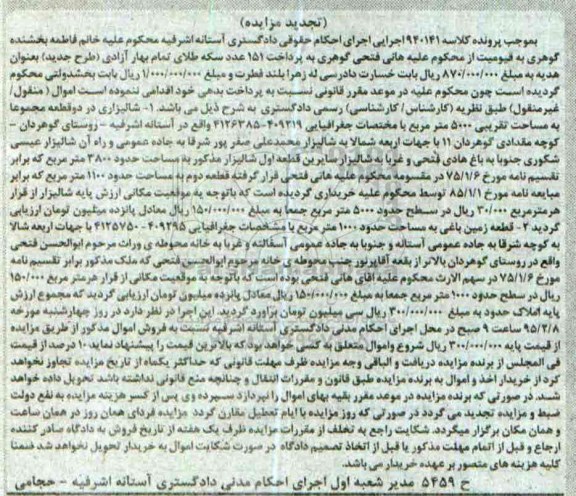 (تجدید مزایده)
بموجب پرونده کلاسه ۹۴۰۱۴۱اجرایی اجرای احکام حقوقی دادگستری آستانه اشرفیه محکوم علیه خانم فاطمه بخشنده
گوهری به قیومیت از محکوم علیه هانی فتحی گوهری به پرداخت ۱۵۱ عدد سکه طلای تمام بهار آزادی (طرح جدید) بعنوان
هدیه به مبلغ ۸۷۰/۰۰۰/۰۰۰ ریال بابت خسارت دادرسی له زهرا بلند فطرت و مبلغ ۱/۰۰۰/۰۰۰/۰۰۰ ریال بابت بخشدولتی محکوم
گردیده است چون محکوم علیه در موعد مقرر قانونی نسبت به پرداخت بدهی خود اقدامی ننموده است اموال (منقول/
غیرمنقول) طبق نظریه (کارشناس/ کارشناسی) رسمی دادگستری به شرح ذیل می باشد. ۱- شالیزاری در دوقطعه مجموعا
به مساحت تقریبی ۵۰۰۰ متر مربع با مختصات جغرافیایی ۴۰۹۳۱۹-۴۱۲۶۳۸۵ واقع در آستانه اشرفیه - روستای گوهردان -
کوچه مقدادی گوهردان ۱۱ با جهات اربعه شمالا به شالیزار محمدعلی صفر پور شرقا به جاده عمومی و راه آن شالیزار عیسی
شکوری جنوبا به باغ هادی فتحی و غربا به شالیزار سایرین قطعه اول شالیزار مذکور به مساحت حدود ۳۸۰۰ متر مربع که برابر
تقسیم نامه مورخ ۷۵/۱/۶ در مقسومه محکوم علیه هانی فتحی قرار گرفته قطعه دوم به مساحت حدود ۱۱۰۰ متر مربع که برابر
مبایعه نامه مورخ ۸۵/۱/۱ توسط محکوم علیه خریداری گردیده است که باتوجه به موقعیت مکانی ارزش پایه شالیزار از قرار
هرمترمربع ۳۰/۰۰۰ ریال در سطح حدود ۵۰۰۰ متر مربع جمعا به مبلغ ۱۵۰/۰۰۰/۰۰۰ ریال معادل پانزده میلیون تومان ارزیابی
گردید ۲- قطعه زمین باغی به مساحت حدود ۱۰۰۰ متر مربع با مشخصات جغرافیایی ۴۰۹۲۹۵-۴۱۲۵۷۵۰ با جهات اربعه شالا
به کوچه شرقا به جاده عمومی آستانه و جنوبا به جاده عمومی آسفالته و غربا به خانه محوطه ی وراث مرحوم ابوالحسن فتحی
واقع در روستای گوهردان بالاتر از بقعه آقاپرنور جنب محوطه ی خانه مرحوم ابوالحسن فتحی که ملک مذکور برابر تقسیم نامه
۷۵/۱/۶ در سهم الارث محکوم علیه آقای هانی فتحی بوده است. که باتوجه به موقعیت مکانی از قرار هرمتر مربع ۱۵۰/۰۰۰
ریال در سطح حدود ۱۰۰۰ متر مربع جمعا به مبلغ ۱۵۰/۰۰۰/۰۰۰ ریال معادل پانزده میلیون تومان ارزیابی گردید که مجموع ارزش
پایه املاک حدود به مبلغ ۳۰۰/۰۰۰/۰۰۰ ریال سی میلیون تومان برآورد گردید. این اجرا در نظر دارد در روز چهارشنبه مورخه
۹۵/۲/۸ ساعت ۹ صبح در محل اجرای احکام مدنی دادگستری آستانه اشرفیه نسبت به فروش اموال مذکور از طریق مزایده
از قیمت پایه ۳۰۰/۰۰۰/۰۰۰ ریال شروع واموال متعلق به کسی خواهد بود که بالاترین قیمت را پیشنهاد نماید ۱۰ درصد از قیمت
فی المجلس از برنده مزایده دریافت و الباقی وجه مزایده ظرف مهلت قانونی که حداکثر یکماه از تاریخ مزایده تجاوز نخواهد
کرد از خریدار اخذ و اموال به برنده مزایده طبق قانون و مقررات انتقال و چنانچه منع قانونی نداشته باشد تحویل داده خواهد
شد. در صورتی که برنده مزایده در موعد مقرر بقیه بهای اموال را نپردازد سپرده وی پس از کسر هزینه مزایده به نفع دولت
ضبط و مزایده تجدید می گردد در صورتی که روز مزایده با ایام تعطیل مقارن گردد مزایده فردای همان روز در همان ساعت
و همان مکان برگزار میگردد. شکایت راجع به تخلف از مقررات مزایده ظرف یک هفته از تاریخ فروش به دادگاه صادر کننده
ارجاع و قبل از اتمام مهلت مذکور یا قبل از اتخاذ تصمیم دادگاه در صورت شکایت اموال به خریدار تحویل نخواهد شد ضمنا
کلیه هزینه های متصور بر عهده خریدار می باشد.
ح ۵۴۵۹ مدیر شعبه اول اجرای احکام مدنی دادگستری آستانه اشرفیه - حجامی